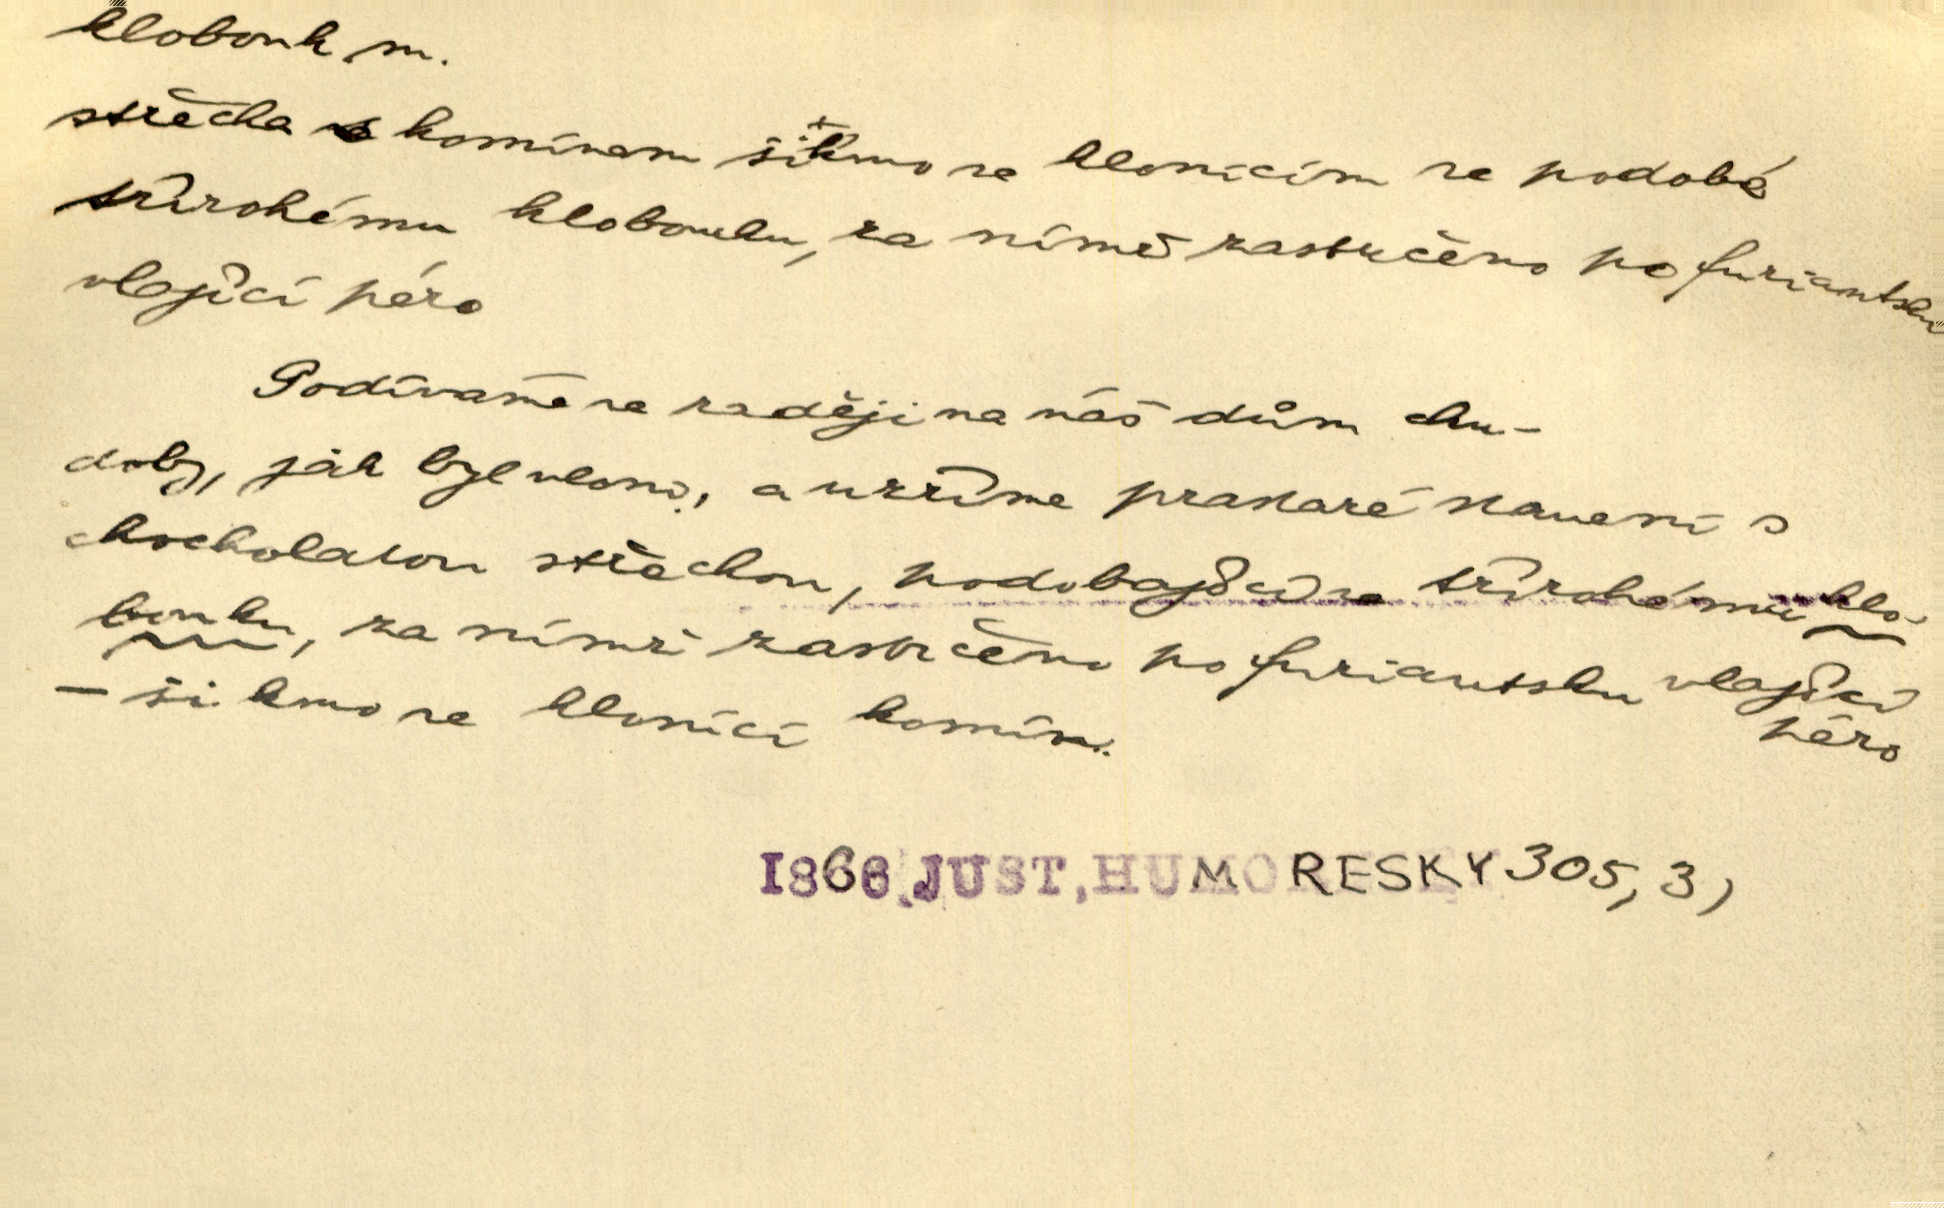 klobouk m.
střecha s komínem šikmo se klonícím se podobá
třírohému klobouku, za nímž zastrčeno po furiantsku
vlající péro
Podívámě se raději na náš dům chu-
doby, jak byl vloni, a uzříme prastaré stavení s
chocholatou střechou, podobající se třírohému klo-
bouku, za nímž zastrčeno po furiantsku vlající
péro
– šikmo se klonící komín.
1866 JUST, HUMORESKY 305, 3)